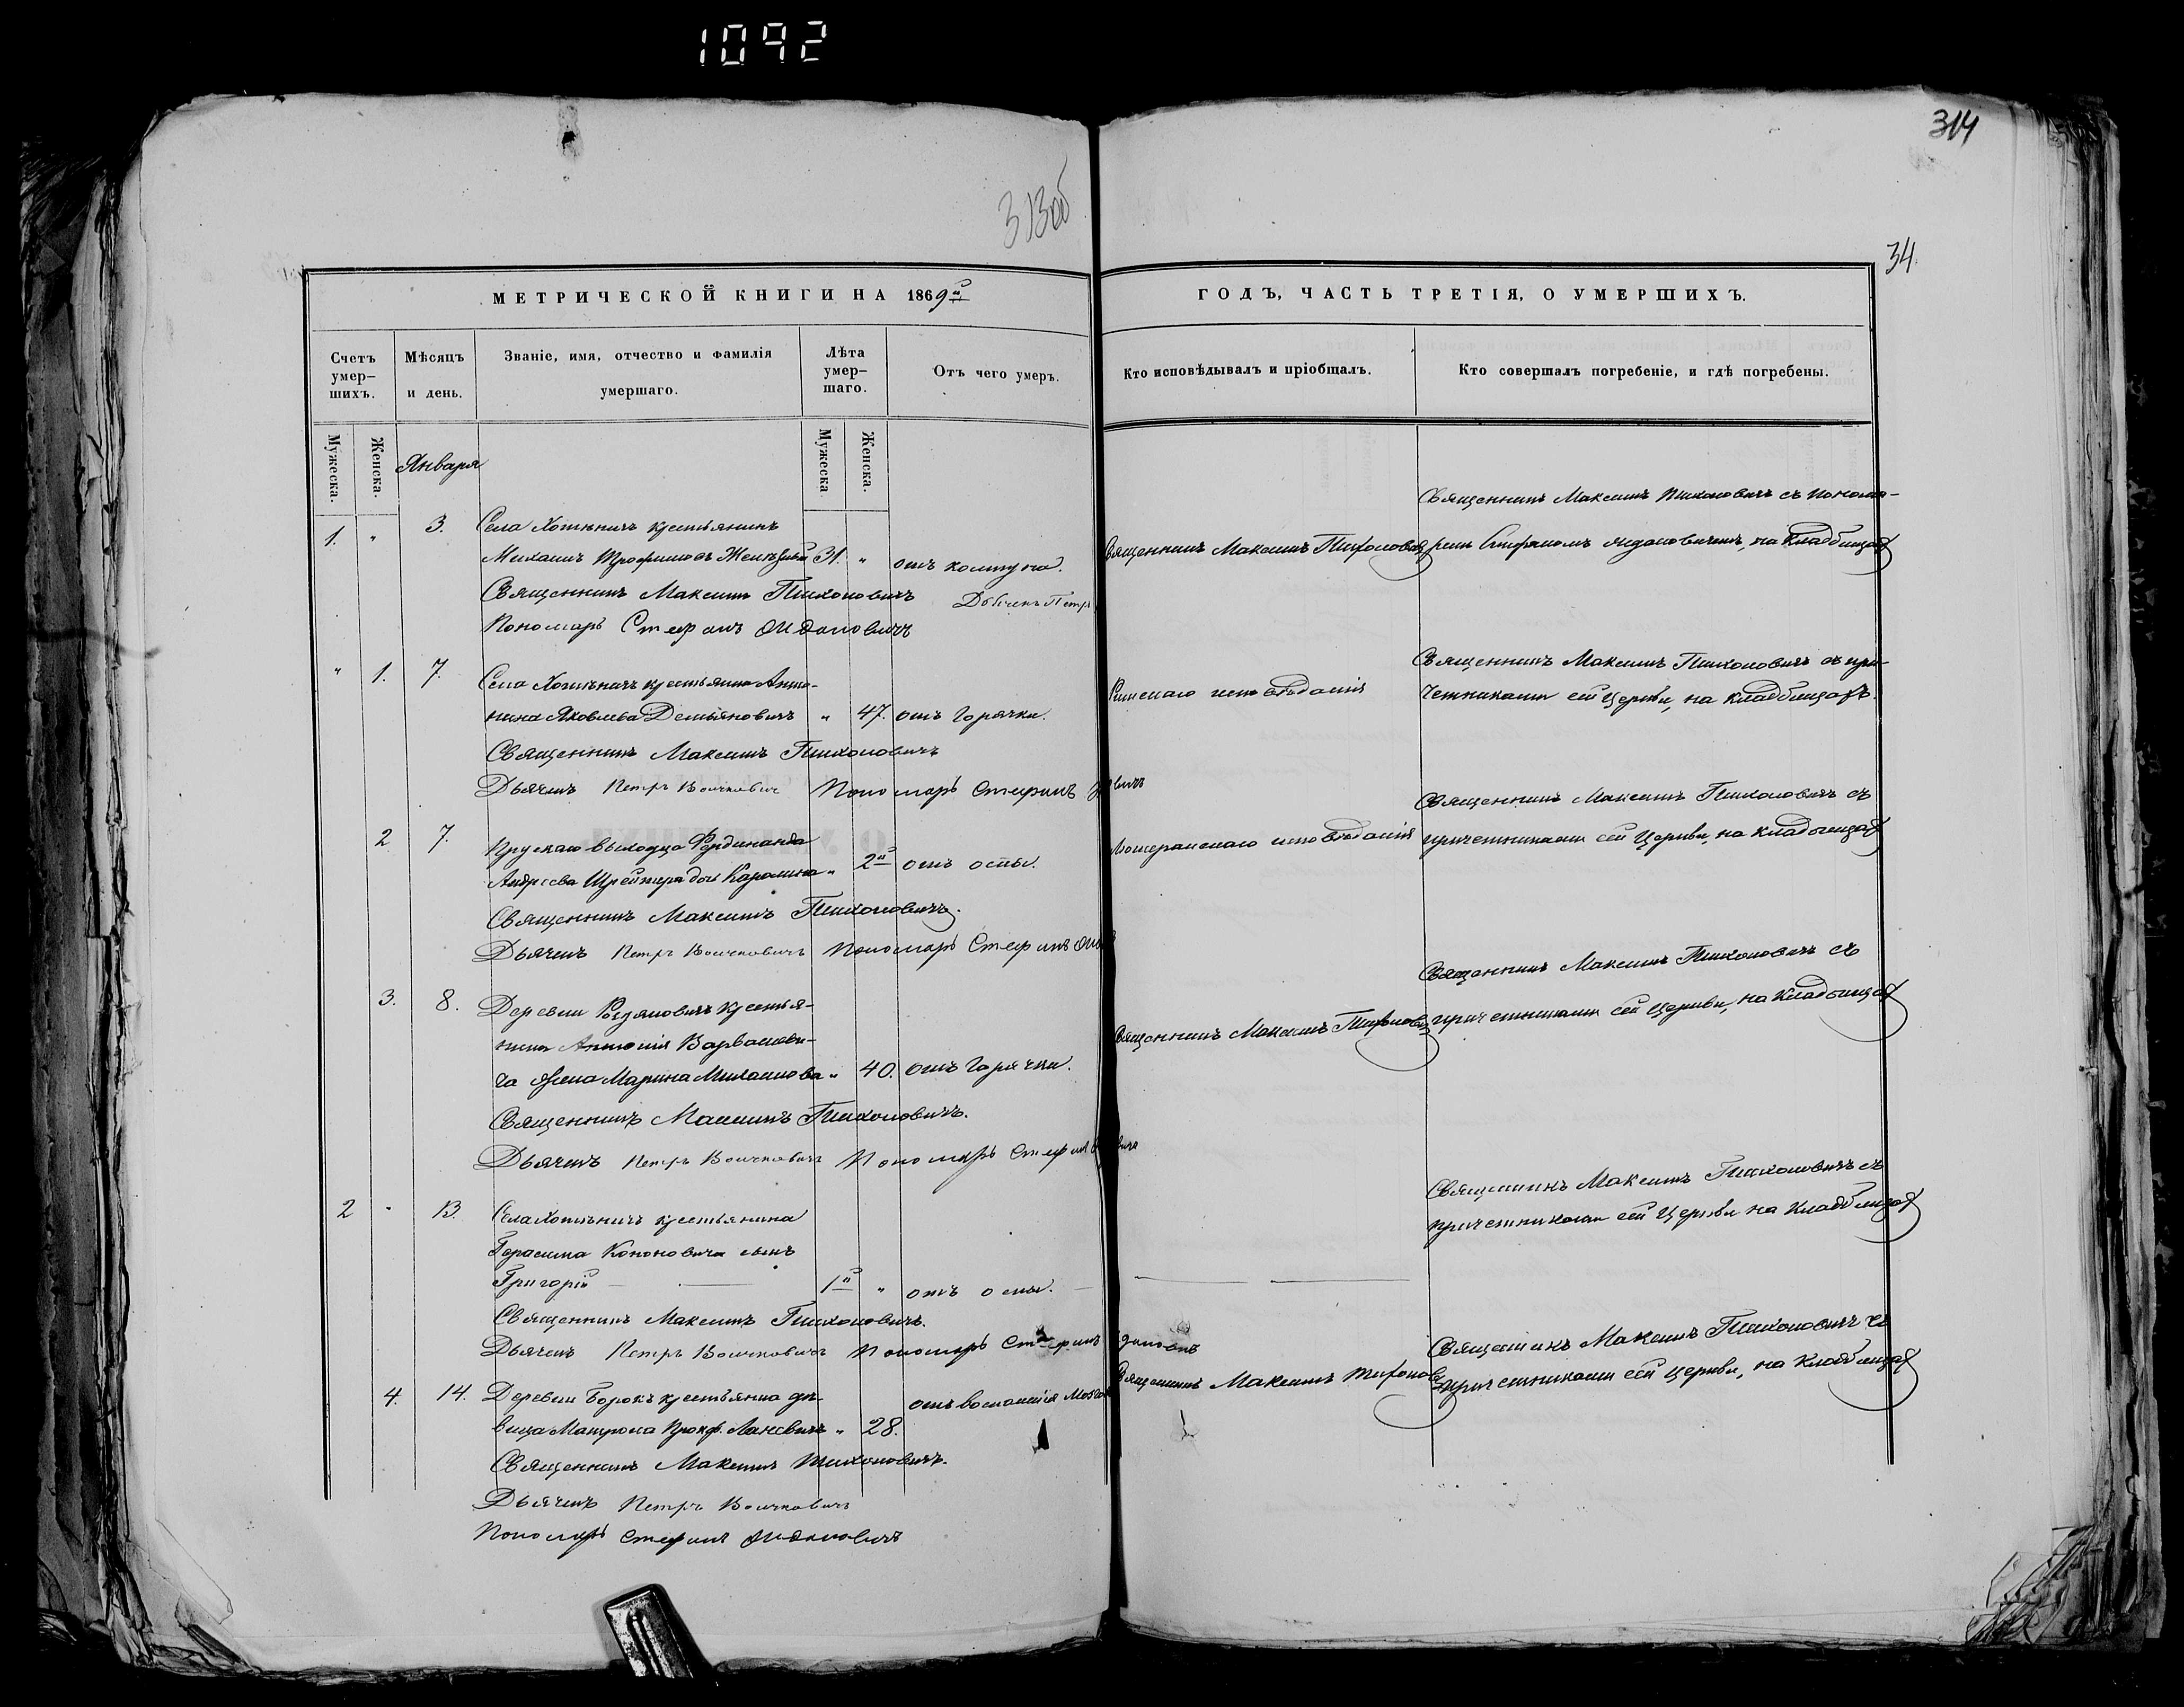 1092
314
313об
34
МЕТРИЧЕСКОЙ КНИГИ НА 1869й
ГОДЪ, ЧАСТЬ ТРЕТІЯ, О УМЕРШИХЪ.
Счетъ умер-шихъ.
Мѣсяцъ и день.
Званіе, имя, отчество и фамилія умершаго.
Лѣта умер-шаго.
Отъ чего умеръ.
Кто исповѣдывалъ и пріобщалъ.
Кто совершалъ погребеніе, и гдѣ погребены.
Мужеска.
Женска.
Января
Мужеска
Женска.
Священникъ Максимъ Тихоновичъ съ понома-
1. " 3. Села Хотѣничъ крестьянинъ
Михаилъ Трофимовъ 31. " отъ колтуна. Священникъ Максимъ Тихоновичъ ремъ Стефаномъ на кладбищахъ
Священникъ Максимъ Тихоновичъ Дьячекъ Петръ
Пономарь Стефанъ
Священникъ Максимъ Тихоновичъ съ при-
" 1. 7. Села Хотѣничъ крестьянка Анто-
Римскаго исповѣданія четниками сей Церкви, на кладбищахъ.
нина Яковлева Демьяновичъ " 47. отъ горячки.
Священникъ Максимъ Тихоновичъ
Дьячекъ Петръ Войчковичъ Пономарь Стефанъ
Священникъ Максимъ Тихоновичъ съ
2 7. Прускаго выходца Фердинанда
Лютеранскаго исповѣданія причетниками сей Церкви, на кладбищахъ
Андреева дочь Каролина " 2й отъ оспы.
Священникъ Максимъ Тихоновичъ.
Дьячекъ Петръ Войчковичъ Пономарь Стефанъ
Священникъ Максимъ Тихоновичъ съ
3. 8. Деревни крестья-
Священникъ Максимъ Тихоновичъ причетниками сей Церкви, на кладбищахъ
нина Антонія Варвашеви-
ча жена Марина Михайлова " 40. отъ горячки.
Священникъ Максимъ Тихоновичъ.
Дьячекъ Петръ Войчковичъ Пономарь Стефанъ
Священникъ Максимъ Тихоновичъ съ
2 " 13. Села Хотѣничъ крестьянина
причетниками сей Церкви на кладбищахъ
Герасима Кононовича сынъ
Григорій 1й " отъ оспы.
Священникъ Максимъ Тихоновичъ.
Дьячекъ Петръ Войчковичъ Пономарь Стефанъ
Священникъ Максимъ Тихоновичъ съ
4. 14. Деревни Борокъ крестьянка дѣ- отъ воспаленія мозга Священникъ Максимъ Тихоновичъ причетниками сей Церкви, на кладбищахъ
вица Матрона Прокф. " 28.
Священникъ Максимъ Тихоновичъ.
Дьячекъ Петръ Войчковичъ
Пономарь Стефанъ